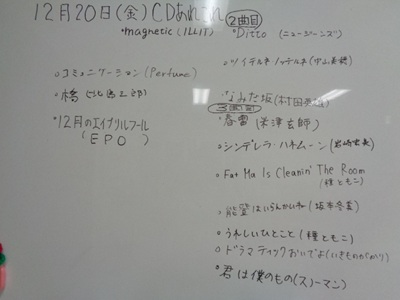 12月20日(金)CDあれこれ
・magnetic(ILLIT)
○コミュニケーション(Perfume)
○橋(北島三郎)
○12月のエイプリルフール
(EPO)
2曲目
・Ditto(ニュージーンズ)
○ツイテルネ ノッテルネ(中山美穂)
なみだ坂(村田英雄)
3曲目
・春雷(米津玄師)
○シンデレラ・ハネムーン(岩崎宏美)
○Fat Ma Is Cleanin' The Room
(種ともこ)
○能登はいらんかいね(坂本冬美)
○うれしいひとこと(種ともこ)
○ドラマティックおいでよ(いきものがかり)
○君は僕のもの(スノーマン)